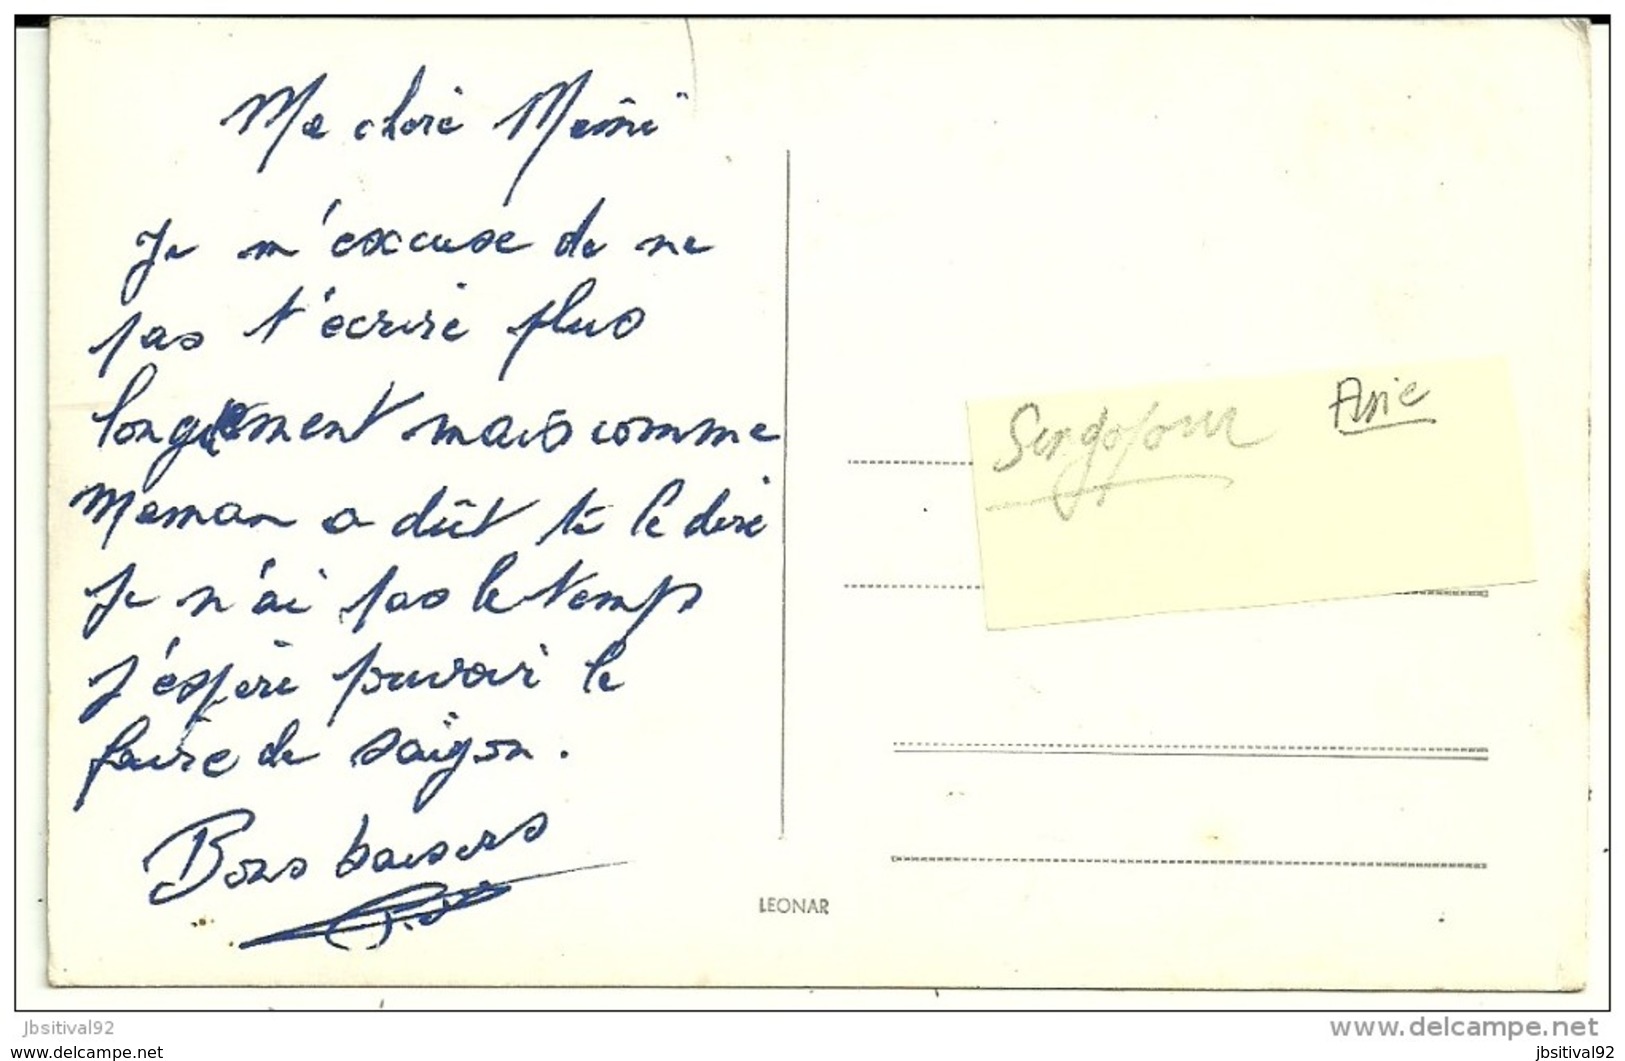 Ma chère Mémé
Je m'excuse de ne
pas t'écrire plus
longuement mais comme
Maman a dût te le dire
Je n'ai pas le temps
J'espère pouvoir le
faire de saïgon.
Bons baisers
LEONAR
Singapour
Asie
jbsitival92
www.delcampe.net
jbsitival92
jbsitival92